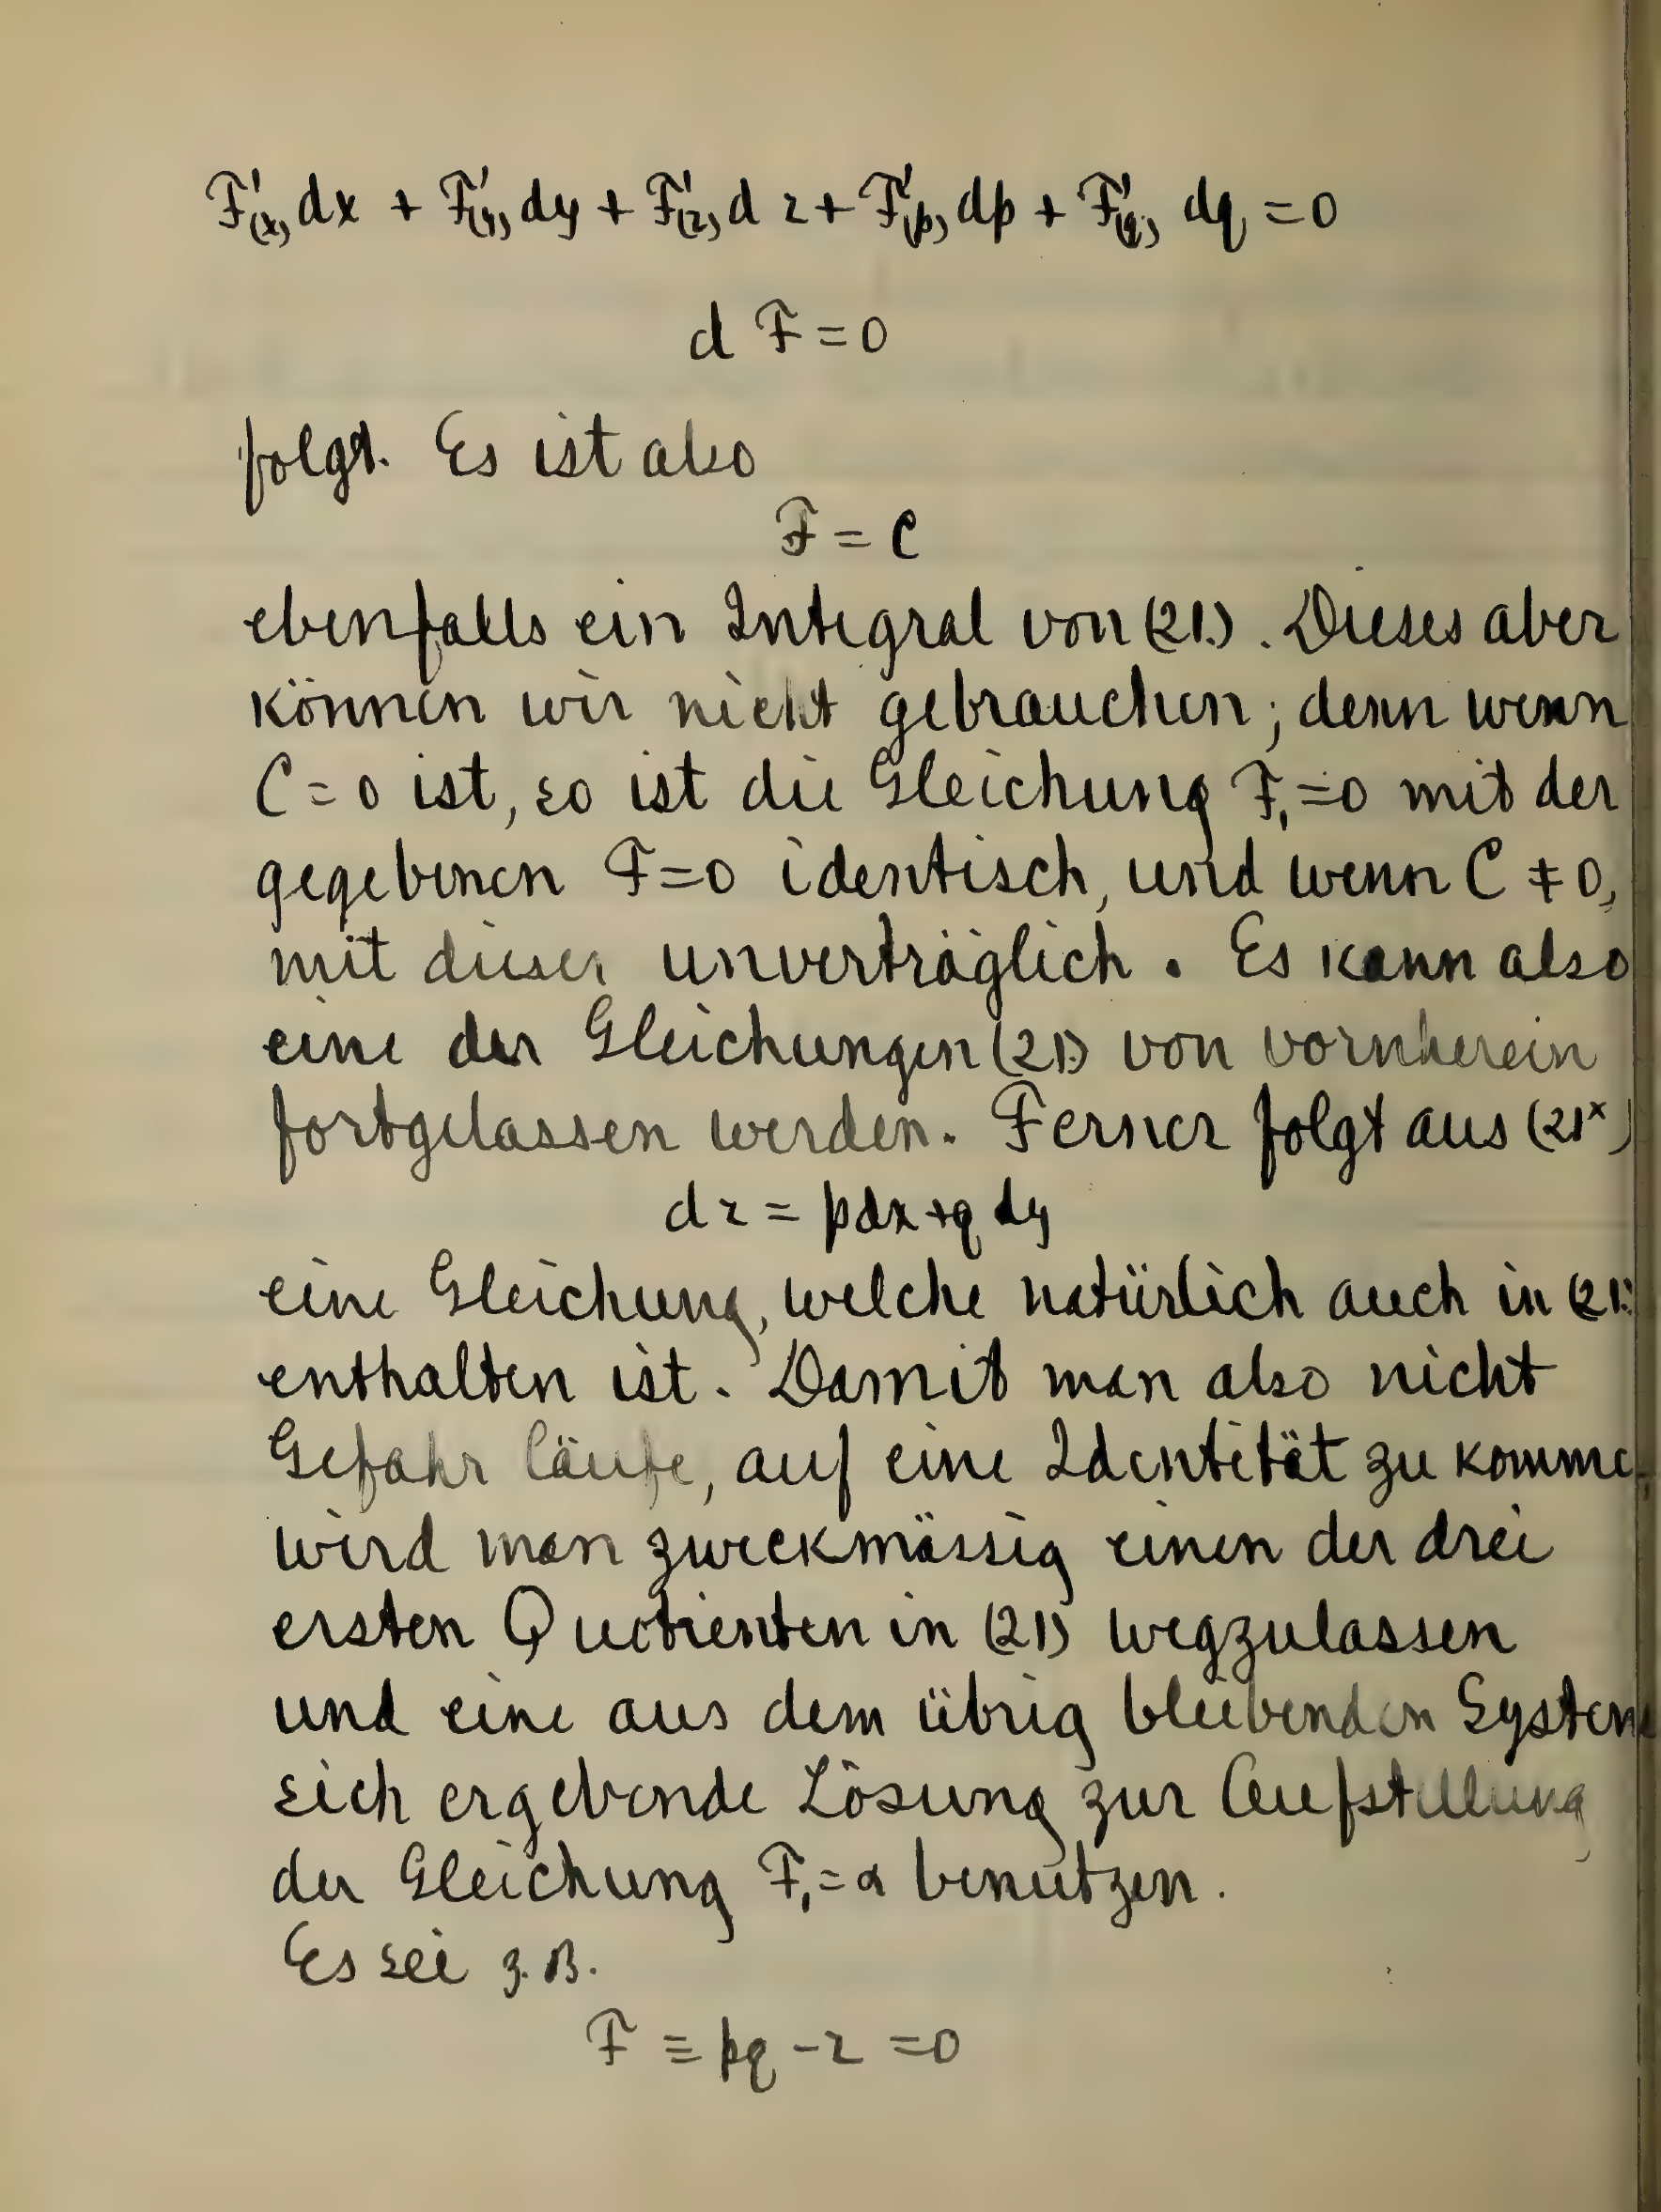 F'(x) dx + F'(y) dy + F'(z) dz + F'(p) dp + F'(q) dq = 0
d F = 0
folgt. Es ist also
F = C
ebenfalls ein Integral von (21.). Dieses aber
können wir nicht gebrauchen; denn wenn
C = 0 ist, so ist die Gleichung F₁ = 0 mit der
gegebenen F = 0 identisch, und wenn C ≠ 0,
mit dieser unverträglich. Es kann also
eine der Gleichungen (21) von vornherein
fortgelassen werden. Ferner folgt aus (21ˣ)
dz = pdx + q dy
eine Gleichung, welche natürlich auch in (21.)
enthalten ist. Damit man also nicht
Gefahr läufe, auf eine Identität zu komme
wird man zweckmässig einen der drei
ersten Quotienten in (21) wegzulassen
und eine aus dem übrig bleibenden System
sich ergebende Lösung zur Aufstellung
der Gleichung F₁ = α benutzen.
Es sei z. B.
F ≡ pq - z = 0